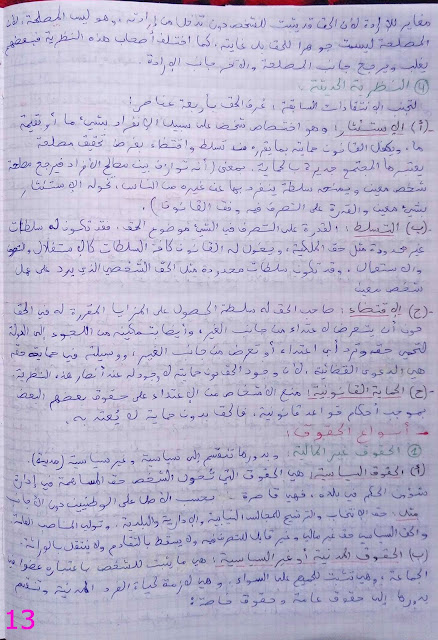 مغاير للإرادة لأن الحق قد يثبت للشخص دون تدخل من إرادته، وهو ليس المصلحة، لأن
المصلحة ليست جوهرا للحق بل غايته، كما اختلف أصحاب هذه النظرية فبعضهم
يغلب ويرجح جانب المصلحة والآخر جانب الإرادة
④ النظرية الحديثة:
لتجنب الانتقادات السابقة، عرف الحق بأربعة عناصر:
-(أ) الاستئثار: وهو اختصاص شخص على سبيل الانفراد بشيء ما أو بقيمة
ما، ويكفل القانون حماية بما يقرره من تسلط واقتضاء بغرض تحقيق مصلحة
يعتبرها المجتمع جديرة بالحماية. بمعنى (أنه توازن بين مصالح الأفراد فيرجح مصلحة
شخص معين ويمنحه سلطة ينفرد بها عن غيره من الناس، تخوله الاستئثار
بشيء معين والقدرة على التصرف فيه وفق القانون)
-(ب) التسلط: القدرة على التصرف في الشيء موضوع الحق، فقد تكون له سلطات
غير محدودة مثل حق الملكية، ويخول له القانون كافة السلطات كالاستغلال والتصرف
والاستعمال. وقد تكون سلطات محدودة مثل الحق الشخصي الذي يرد على عمل
شخص معين
-(ج) الاقتضاء: صاحب الحق له سلطة الحصول على المزايا المقررة له في الحق
دون أن يتعرض لاعتداء من جانب الغير، وأيضا تمكينه من اللجوء إلى الدولة
لتحمي حقه وترد أي اعتداء أو تعرض من جانب الغير، ووسيلته في حماية حقه
هي الدعوى القضائية، لأن وجود الحق دون حماية لا وجود له عند أنصار هذه النظرية
-(ح) الحماية القانونية: منع الأشخاص من الاعتداء على حقوق بعضهم البعض
بموجب أحكام قواعد قانونية، فالحق بدون حماية لا يُعتد به.
- أنواع الحقوق:
① الحقوق غير المالية: وبدورها تنقسم إلى سياسية وغير سياسية (مدنية).
(أ) الحقوق السياسية: هي الحقوق التي تُخول الشخص حق المساهمة في إدارة
شؤون الحكم في بلده، فهي قاصرة بحسب الأصل على الوطنيين دون الأجانب
مثل: حق الانتخاب والترشح للمجالس النيابية والإدارية والبلدية، وتولي المناصب العامة
والحق السياسي حق غير مالي وغير قابل للتصرف فيه ولا يسقط بالتقادم ولا ينتقل بالوراثة.
(ب) الحقوق المدنية أو غير السياسية: هي ما يثبت للشخص باعتباره عضوا في
الجماعة، وهي تثبت للجميع على السواء، وهي لازمة لحياة الفرد المدنية وتنقسم
بدورها إلى حقوق عامة وحقوق خاصة:
13